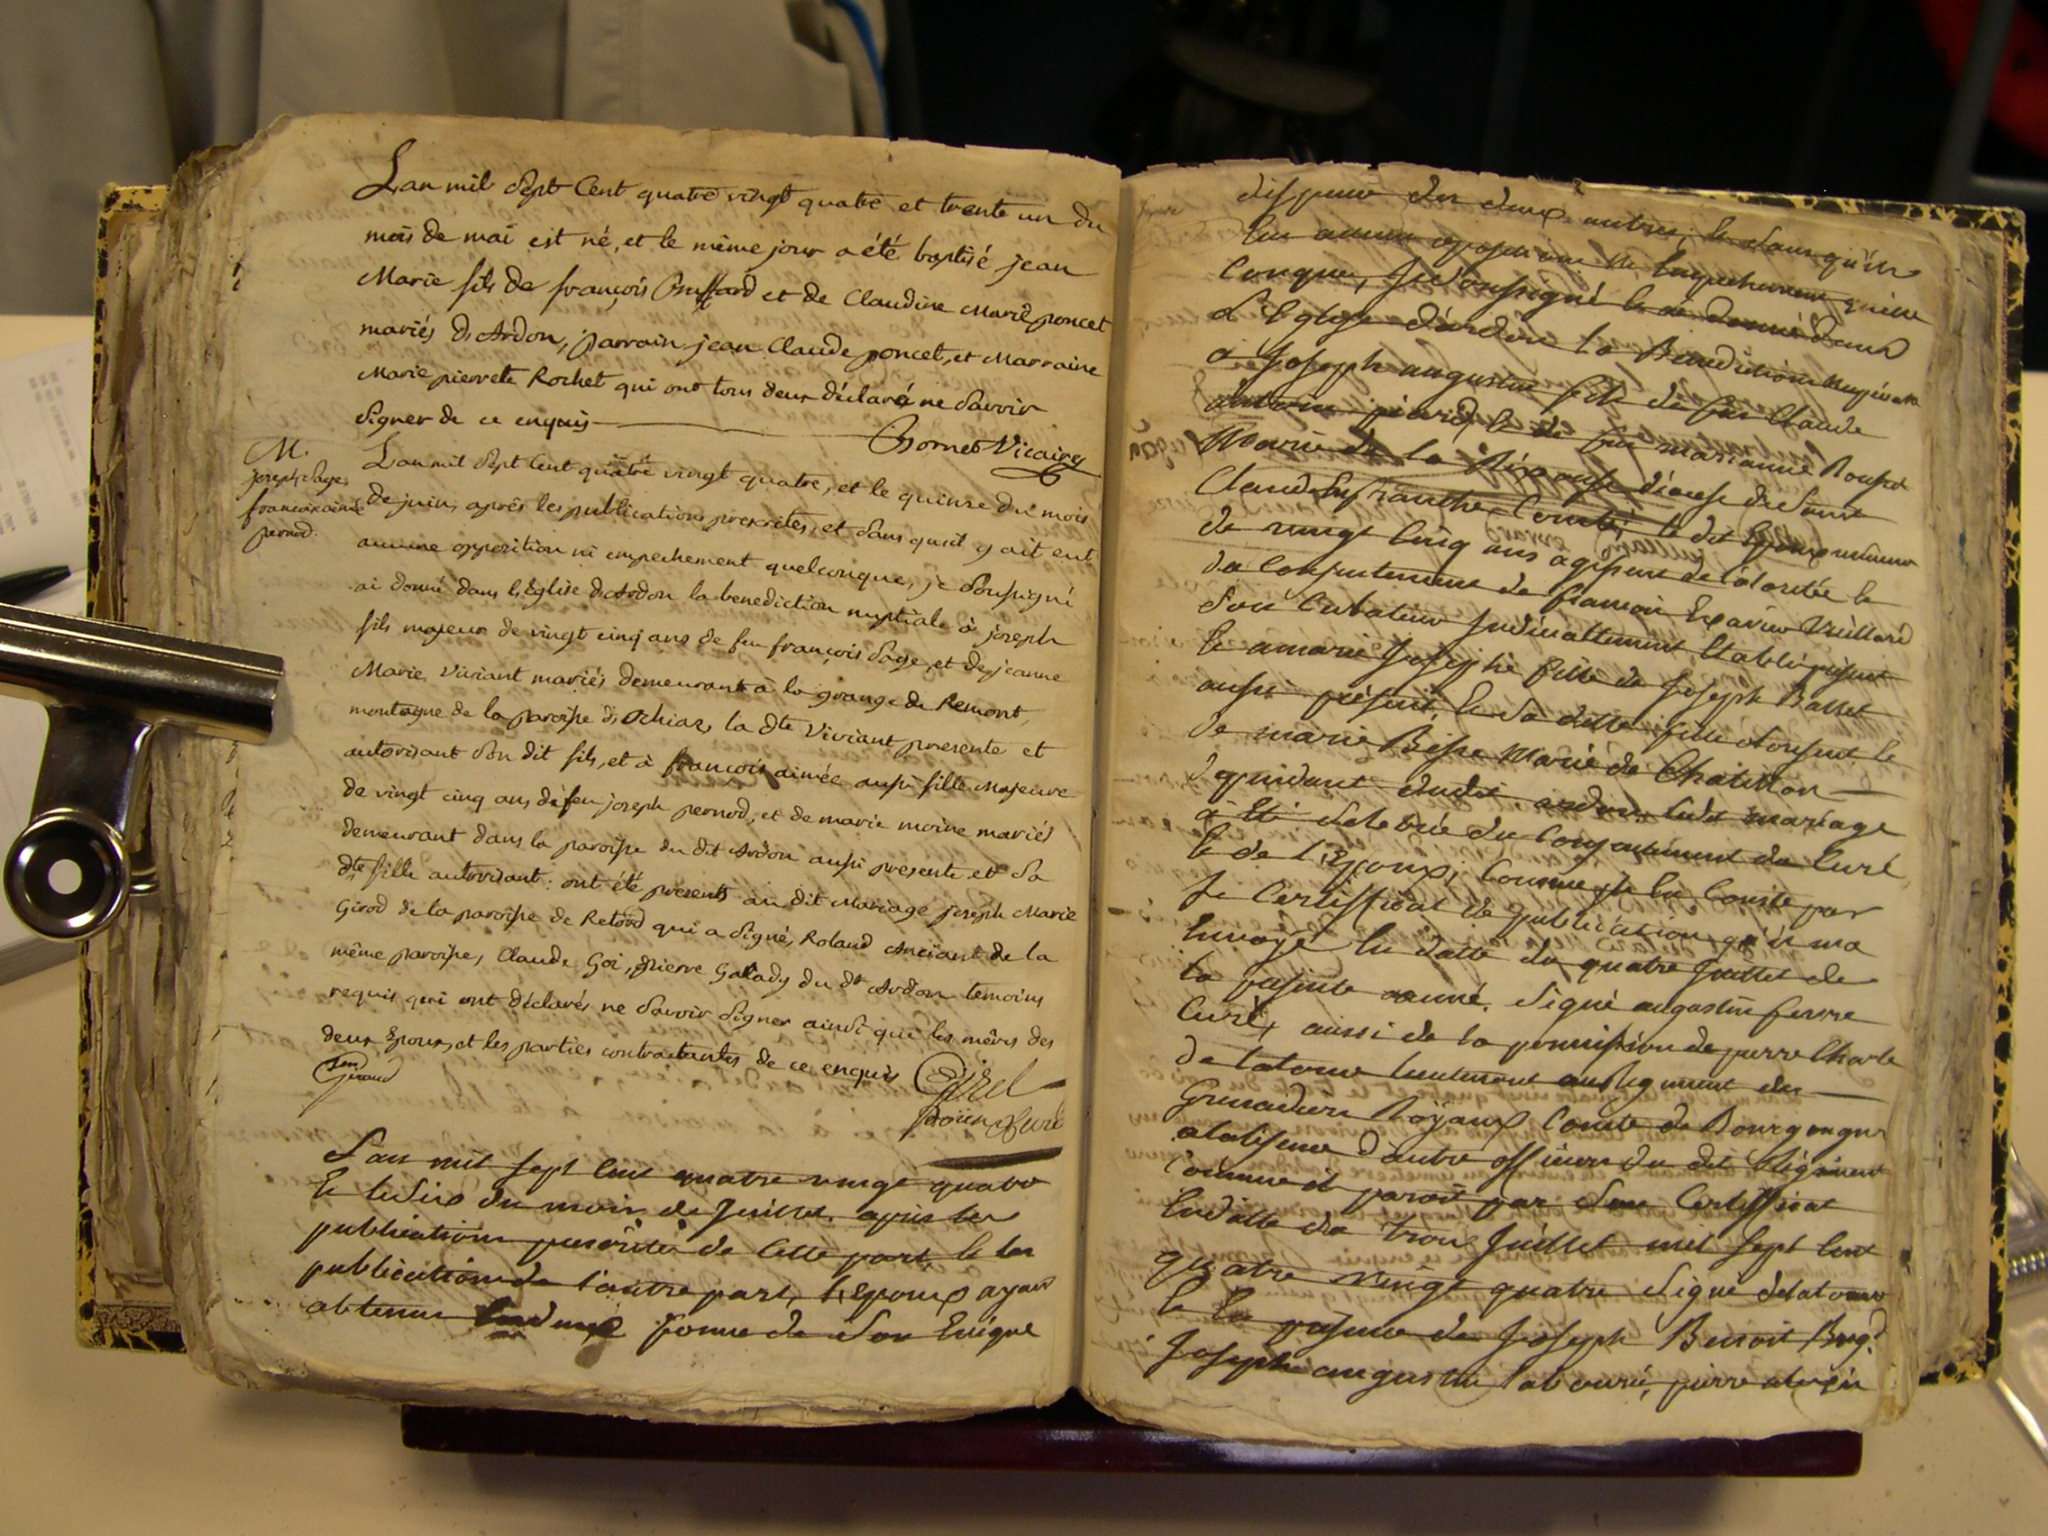 L'an mil Sept Cent quatre vingt quatre et trente un du
mois de mai est né, et le même jour a été baptisé jean
Marie fils de françois et de Claudine Marie poncet
mariés d'Ardon, parrain jean Claude poncet, et Marraine
Marie pierrete Rochet qui ont tous deux déclaré ne Savoir
Signer de ce enquis
Bornet Vicaire
M.
joseph Sage
francoise aimée
pernod.
L'an mil Sept Cent quatre vingt quatre, et le quinze du mois
de juin, après les publications prescrites, et Sans qu'il y ait eut
aucune opposition ni empechement quelconque, je Soussigné
ai donné dans l'Eglise d'Ardon la benediction nuptiale à joseph
fils majeur de vingt cinq ans de feu françois Sage, et de jeanne
Marie Viviant mariés demeurant à la grange de Remont,
montagne de la paroisse d'Ochiaz, la dte Viviant presente et
autorisant Son dit fils, et à francoise aimée aussi fille Majeure
de vingt cinq ans de feu joseph pernod, et de marie moine mariés
demeurant dans la paroisse du dit Ardon aussi presente et Sa
dte fille autorisant : ont été presents au dit Mariage joseph Marie
Girod de la paroisse de Retord qui a Signé, Roland Anciant de la
même paroisse, Claude Goi, pierre Galady du dt Ardon temoins
requis qui ont déclarés ne Savoir Signer ainsi que les mères des
deux Epoux, et les parties contractantes de ce enquis
L'an mil sept cent quatre vingt quatre
et le six du mois de Juillet. après les
publications prescrites de cette part, et les
publications de l'autre part, l'Epoux ayant
obtenu forme de Son Evéque
dispense des deux autres, et Sans qu'il
conque, Je Soussigné ai donné dans
L'Eglise d'ardon la Benediction nuptiale
a Joseph augustin fils de feu Claude
et de feu marianne
Marié de la diocese de Saint
Claude en franche Comté, le dit Epoux mineur
de vingt Cinq ans agissant de l'autorité et
du Consentement de francois Exavier Vuillard
Son Curateur Judiciallement Etabli present
et a marie Josephe fille de Joseph Ballet
aussi présent, et Sa dette fille autorisant et
de marie Mariés de Chatillon
dudit ardon. Ledit mariage
a Eté celebrée du Consentement du Curé
et de l'Epoux, Comme il Conste par
Le Certifficat de publication qu'il ma
Envoyé En datte du quatre Juillet de
La présente année. Signé augustin favre
Curé, aussi de la permission de pierre Charle
De latour Lieutenant au Regiment des
Grenadiers Royaux Comté de Bourgogne
a l'absence d'autre officier du dit Régiment
Comme il paroit par Son Certifficat
En datte du trois Juillet mil sept Cent
quatre vingt quatre Signé delatour
Et En présence de Joseph Benoit
Joseph augustin